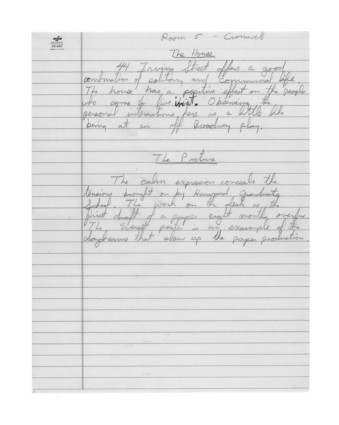 Room 5 - Cromwell
The House
44 Irving Street offers a good
combination of solitary and communal life.
The house has a positive effect on the people
who come to live in it. Observing the
personal interactions here is a little like
being at an off Broadway play.
The Picture
The calm expression conceals the
tensions brought on by Harvard Graduate
School. The work on the desk is the
first draft of a paper eight months overdue.
The poster is an example of the
daydreams that slow up the paper production